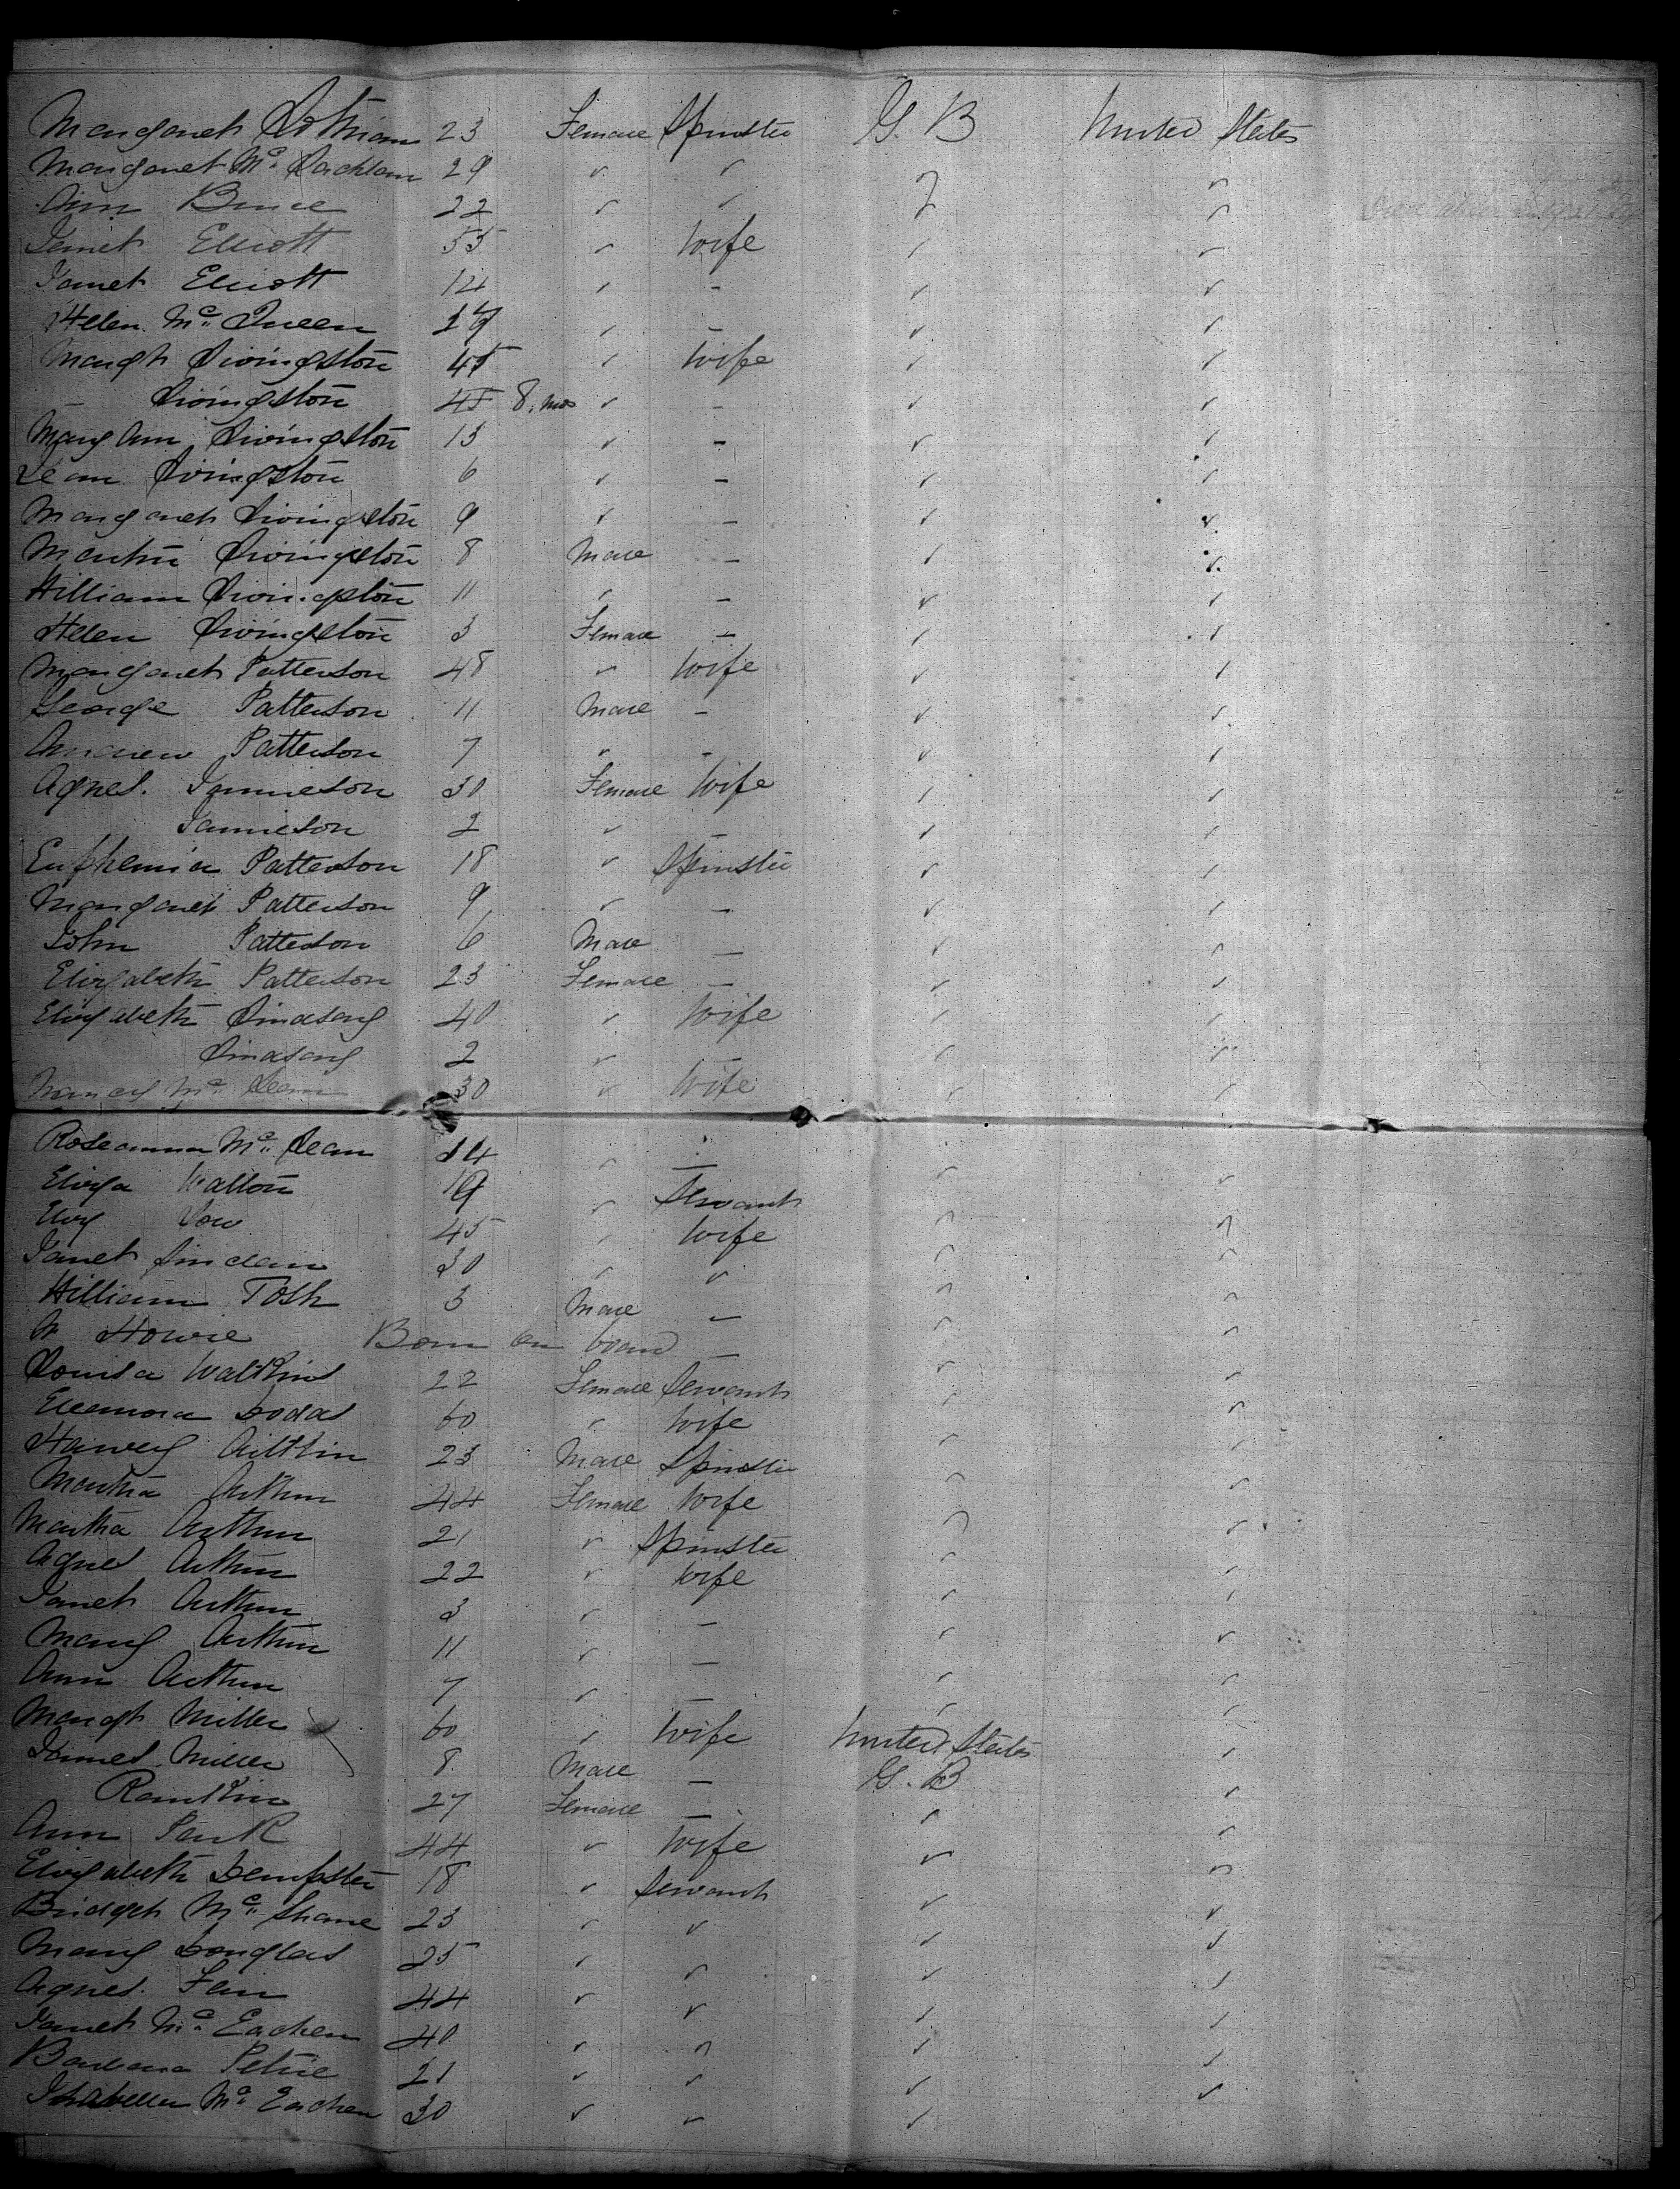 Margaret Lothian 23 Female Spinster G. B United States
Margaret Mc. Lachlan 29 " " " "
Ann Bruce 22 " " " "
Janet Elliott 55 " Wife " "
Janet Elliott 14 " - " "
Helen Mc. Queen 17 " - " "
Margt Livingston 45 " Wife " "
Livingston 8. mos " - " "
Mary Ann Livingston 13 " - " "
Jean Livingston 6 " - " "
Margaret Livingston 9 " - " "
Martin Livingston 8 Male - " "
William Livingston 11 " - " "
Helen Livingston 3 Female - " "
Margaret Patterson 48 " Wife " "
George Patterson 11 Male - " "
Andrew Patterson 7 " - " "
Agnes. Jamieson 30 Female Wife " "
Jamieson 2 " - " "
Euphemia Patterson 18 " Spinster " "
Margaret Patterson 9 " - " "
John Patterson 6 Male - " "
Elizabeth Patterson 23 Female - " "
Elizabeth Lindsay 40 " Wife " "
Lindsay 2 " - " "
Nancy Mc. Lean 30 " Wife " "
Roseanna Mc. Lean 14 " - " "
Eliza Walton 19 " Servant " "
Eliz Dow 45 " Wife " "
Janet Sinclair 30 " " " "
William Tosh 3 Male - " "
Howie Born on board - " "
Louisa Watkins 22 Female Servant " "
Eleenora Dodds 60 " Wife " "
Harvey Aitkin 23 Male Spinster " "
Martha Arthur 44 Female Wife " "
Martha Arthur 21 " Spinster " "
Agnes Arthur 22 " Wife " "
Janet Arthur 3 " - " "
Mary Arthur 11 " - " "
Ann Arthur 7 " - " "
Margt Miller 60 " Wife United States "
James Miller 8 Male - G. B "
Rankin 27 Female - " "
Ann Park 44 " Wife " "
Elizabeth Dempster 18 " Servant " "
Bridget Mc. Shane 23 " " " "
Mary Douglas 25 " " " "
Agnes. Fair 44 " " " "
Janet Mc. Eachen 40 " " " "
Barbara Petrie 21 " " " "
Isabella Mc. Eachen 30 " " " "